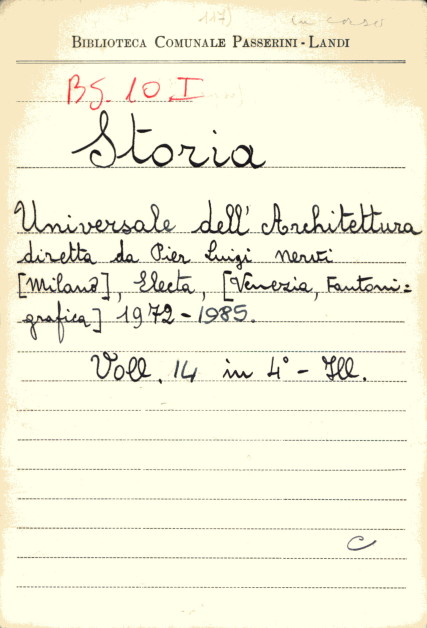 117) (in corso)
BIBLIOTECA COMUNALE PASSERINI-LANDI
B5. 10. I
Storia
Universale dell' Architettura
diretta da Pier Luigi Nervi
[Milano], Electa, [Venezia, Fantoni=
grafica] 1972-1985.
Voll. 14 in 4° - Ill.
C